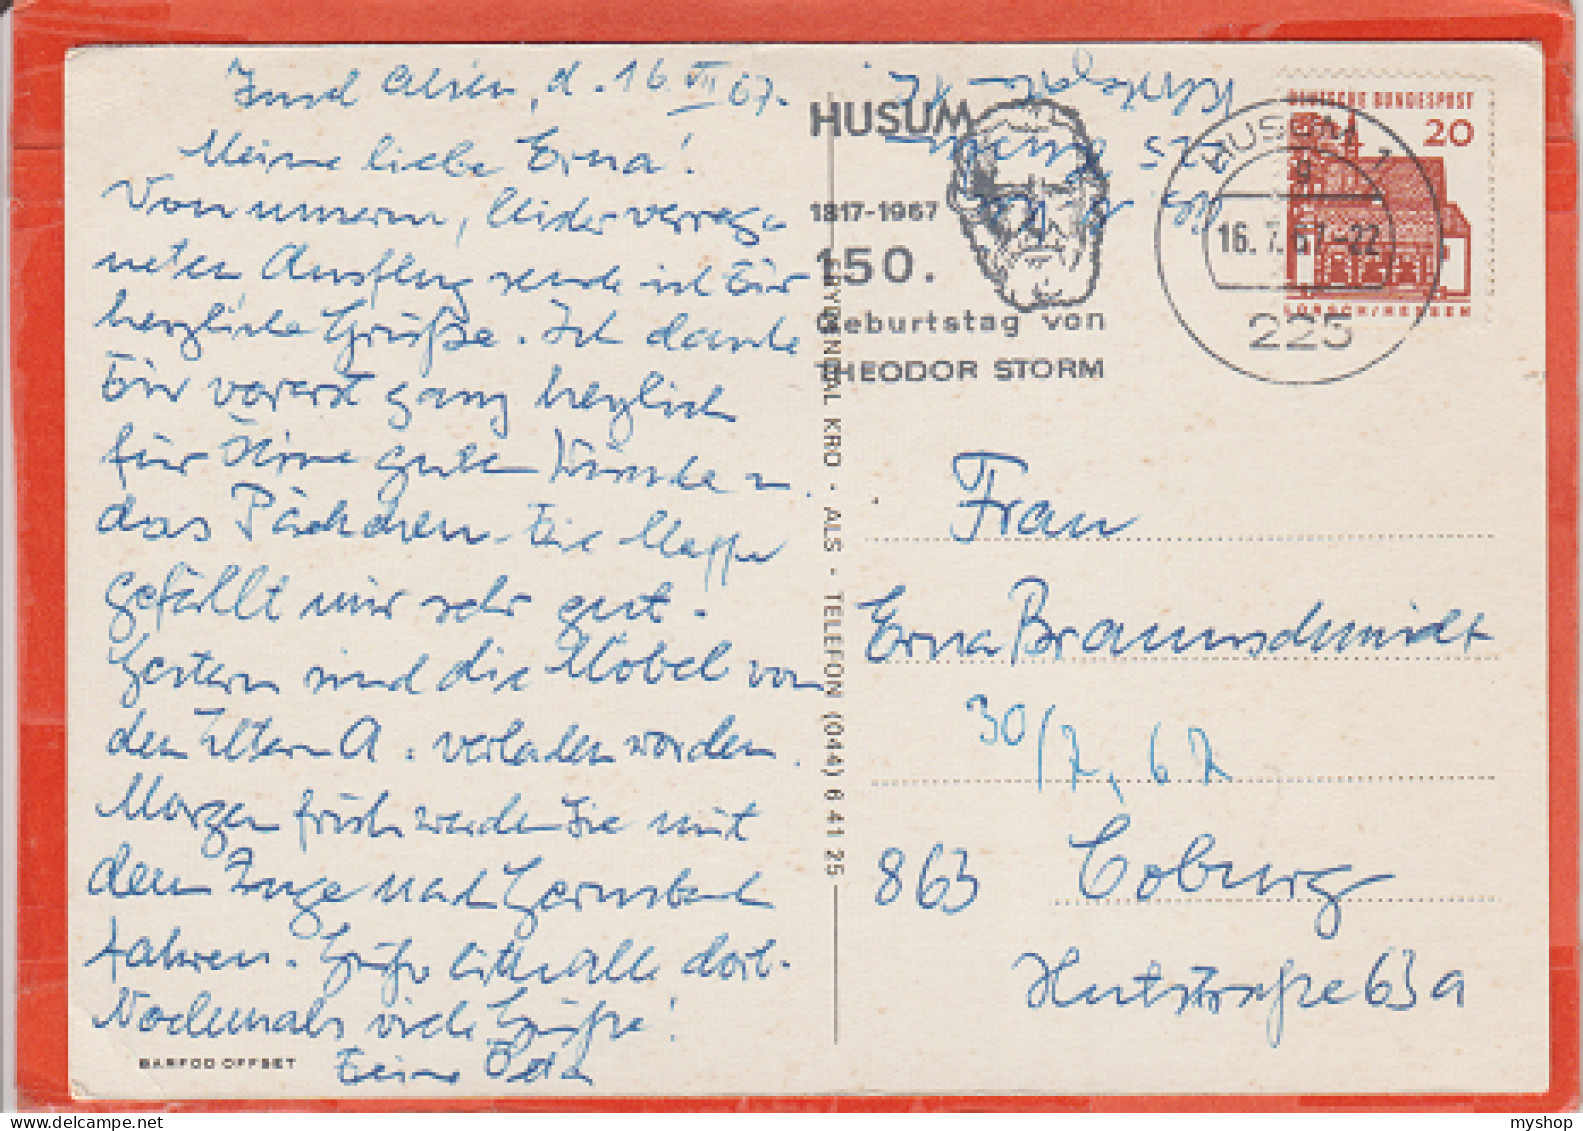 Insel Alsen, d. 16 VII 67.
Meine liebe Erna!
Von unserm, leider verreg-
neten Ausflug sende ich Dir
herzliche Grüße. Ich danke
Dir vorerst ganz herzlich
für Deine guten Wünsche u.
das Päckchen. Die Mappe
gefällt mir sehr gut.
Gestern sind die Möbel von
den Eltern A. verladen worden.
Morgen früh werden Sie mit
dem Zuge nach Gernsbach
fahren. Grüße bitte alle dort.
Nochmals viele Grüße!
Deine Oda
BARFOD OFFSET
BRYDENDAL KRO - ALS - TELEFON (044) 6 41 25
225 Husum
HUSUM
1817-1967
150.
Geburtstag von
THEODOR STORM
HUSUM 1
16. 7. 67-22
225
DEUTSCHE BUNDESPOST
20
LORSCH/HESSEN
Frau
Erna Braunschmidt
30/7. 67
863 Coburg
Hutstraße 63a
myshop